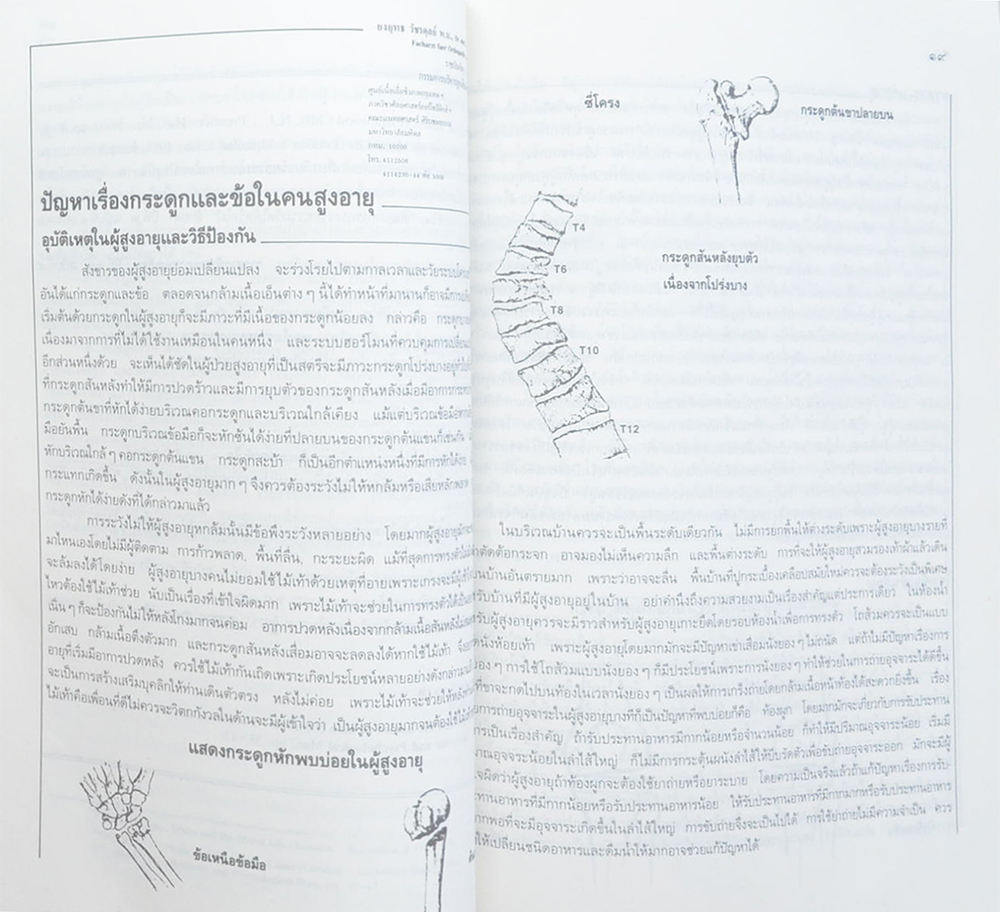 ยงยุทธ วัชรดุลย์ พ.บ.,
กรรมการบริหาร
ศูนย์เนื้อเยื่อชีวภาพกรุงเทพ ฯ
ภาควิชาศัลยศาสตร์ออร์โธปิดิคส์ ฯ
คณะแพทยศาสตร์ ศิริราชพยาบาล
มหาวิทยาลัยมหิดล
กทม. 10700
โทร. 4112506
ปัญหาเรื่องกระดูกและข้อในคนสูงอายุ
อุบัติเหตุในผู้สูงอายุและวิธีป้องกัน
สังขารของผู้สูงอายุย่อมเปลี่ยนแปลง จะร่วงโรยไปตามกาลเวลาและวัยระบบ
อันได้แก่กระดูกและข้อ ตลอดจนกล้ามเนื้อเอ็นต่าง ๆ นี้ได้ทำหน้าที่มานานก็อาจมีการ
เริ่มต้นด้วยกระดูกในผู้สูงอายุก็จะมีภาวะที่มีเนื้อของกระดูกน้อยลง กล่าวคือ
เนื่องมาจากการที่ไม่ได้ใช้งานเหมือนในคนหนึ่ง และระบบฮอร์โมนที่ควบคุมการ
อีกส่วนหนึ่งด้วย จะเห็นได้ชัดในผู้ป่วยสูงอายุที่เป็นสตรีจะมีภาวะกระดูกโปร่งบาง
ที่กระดูกสันหลังทำให้มีการปวดร้าวและมีการยุบตัวของกระดูกสันหลังเมื่อมีอาการ
กระดูกต้นขาที่หักได้ง่ายบริเวณคอกระดูกและบริเวณใกล้เคียง แม้แต่บริเวณข้อมือ
มือยันพื้น กระดูกบริเวณข้อมือก็จะหักซ้นได้ง่ายที่ปลายบนของกระดูกต้นแขนก็เช่นกัน
หักบริเวณใกล้ ๆ คอกระดูกต้นแขน กระดูกสะบ้า ก็เป็นอีกตำแหน่งหนึ่งที่มีการหักได้ง่าย
กระแทกเกิดขึ้น ดังนั้นในผู้สูงอายุมาก ๆ จึงควรต้องระวังไม่ให้หกล้มหรือเสียหลัก
กระดูกหักได้ง่ายดังที่ได้กล่าวมาแล้ว
การระวังไม่ให้ผู้สูงอายุหกล้มนั้นมีข้อพึงระวังหลายอย่าง โดยมากผู้สูงอายุมัก
มาไหนเองโดยไม่มีผู้ติดตาม การก้าวพลาด, พื้นที่ลื่น, กะระยะผิด แม้ที่สุดการทรงตัว
จะล้มลงได้โดยง่าย ผู้สูงอายุบางคนไม่ยอมใช้ไม้เท้าด้วยเหตุที่อายเพราะเกรงจะมีผู้
ไหวต้องใช้ไม้เท้าช่วย นับเป็นเรื่องที่เข้าใจผิดมาก เพราะไม้เท้าจะช่วยในการทรงตัวได้
เนิ่น ๆ ก็จะป้องกันไม่ให้หลังโกงมากจนค่อม อาการปวดหลังเนื่องจากกล้ามเนื้อสันหลัง
อักเสบ กล้ามเนื้อตึงตัวมาก และกระดูกสันหลังเสื่อมอาจจะลดลงได้หากใช้ไม้เท้า
อายุที่เริ่มมีอาการปวดหลัง ควรใช้ไม้เท้ากันเถิดเพราะเกิดประโยชน์หลายอย่างดังกล่าว
จะเป็นการสร้างเสริมบุคลิกให้ท่านเดินตัวตรง หลังไม่ค่อย เพราะไม้เท้าจะช่วยให้
ไม้เท้าคือเพื่อนที่ดีไม่ควรจะวิตกกังวลในด้านจะมีผู้เข้าใจว่า เป็นผู้สูงอายุมากจนต้องใช้
แสดงกระดูกหักพบบ่อยในผู้สูงอายุ
ข้อเหนือข้อมือ
๑๙
ซี่โครง
กระดูกต้นขาปลายบน
T4
T6
T8
T10
T12
กระดูกสันหลังยุบตัว
เนื่องจากโปร่งบาง
ในบริเวณบ้านควรจะเป็นพื้นระดับเดียวกัน ไม่มีการยกพื้นให้ต่างระดับเพราะผู้สูงอายุบางรายที่
ตัดต้อกระจก อาจมองไม่เห็นความลึก และพื้นต่างระดับ การที่จะให้ผู้สูงอายุสวมรองเท้าผ้าแล้วเดิน
บ้านอันตรายมาก เพราะว่าอาจจะลื่น พื้นบ้านที่ปูกระเบื้องเคลือบสมัยใหม่ควรจะต้องระวังเป็นพิเศษ
บ้านที่มีผู้สูงอายุอยู่ในบ้าน อย่าคำนึงถึงความสวยงามเป็นเรื่องสำคัญแต่ประการเดียว ในห้องน้ำ
ผู้สูงอายุควรจะมีราวสำหรับผู้สูงอายุเกาะยึดโดยรอบห้องน้ำเพื่อการทรงตัว โถส้วมควรจะเป็นแบบ
นั่งห้อยเท้า เพราะผู้สูงอายุโดยมากมักจะมีปัญหาเข่าเสื่อมนั่งยอง ๆ ไม่ถนัด แต่ถ้าไม่มีปัญหาเรื่องการ
ยอง ๆ การใช้โถส้วมแบบนั่งยอง ๆ ก็มีประโยชน์เพราะการนั่งยอง ๆ ทำให้ช่วยในการถ่ายอุจจาระได้ดีขึ้น
ที่ขาจะกดไปบนท้องในเวลานั่งยอง ๆ เป็นผลให้การเกร็งถ่ายโดยกล้ามเนื้อหน้าท้องได้สะดวกยิ่งขึ้น เรื่อง
การถ่ายอุจจาระในผู้สูงอายุบางทีก็เป็นปัญหาที่พบบ่อยก็คือ ท้องผูก โดยมากมักจะเกี่ยวกับการรับประทาน
เป็นเรื่องสำคัญ ถ้ารับประทานอาหารมีกากน้อยหรือจำนวนน้อย ก็ทำให้มีปริมาณอุจจาระน้อย เริ่มมี
อุจจาระน้อยในลำไส้ใหญ่ ก็ไม่มีการกระตุ้นผนังลำไส้ให้บีบรัดตัวเพื่อขับถ่ายอุจจาระออก มักจะมีผู้
ผิดว่าผู้สูงอายุถ้าท้องผูกจะต้องใช้ยาถ่ายหรือยาระบาย โดยความเป็นจริงแล้วถ้าแก้ปัญหาเรื่องการรับ-
ทานอาหารที่มีกากน้อยหรือรับประทานอาหารน้อย ให้รับประทานอาหารที่มีกากมากหรือรับประทานอาหาร
พอที่จะมีอุจจาระเกิดขึ้นในลำไส้ใหญ่ การขับถ่ายจึงจะเป็นไปได้ การใช้ยาถ่ายไม่มีความจำเป็น ควร
ให้เปลี่ยนชนิดอาหารและดื่มน้ำให้มากอาจช่วยแก้ปัญหาได้